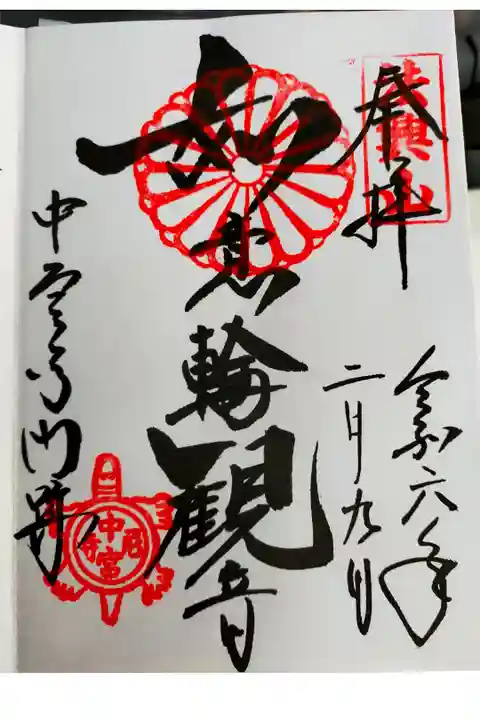 奉拝
法興山
令和六年
二月九日
如意輪観音
中宮寺門跡
中宮尼寺